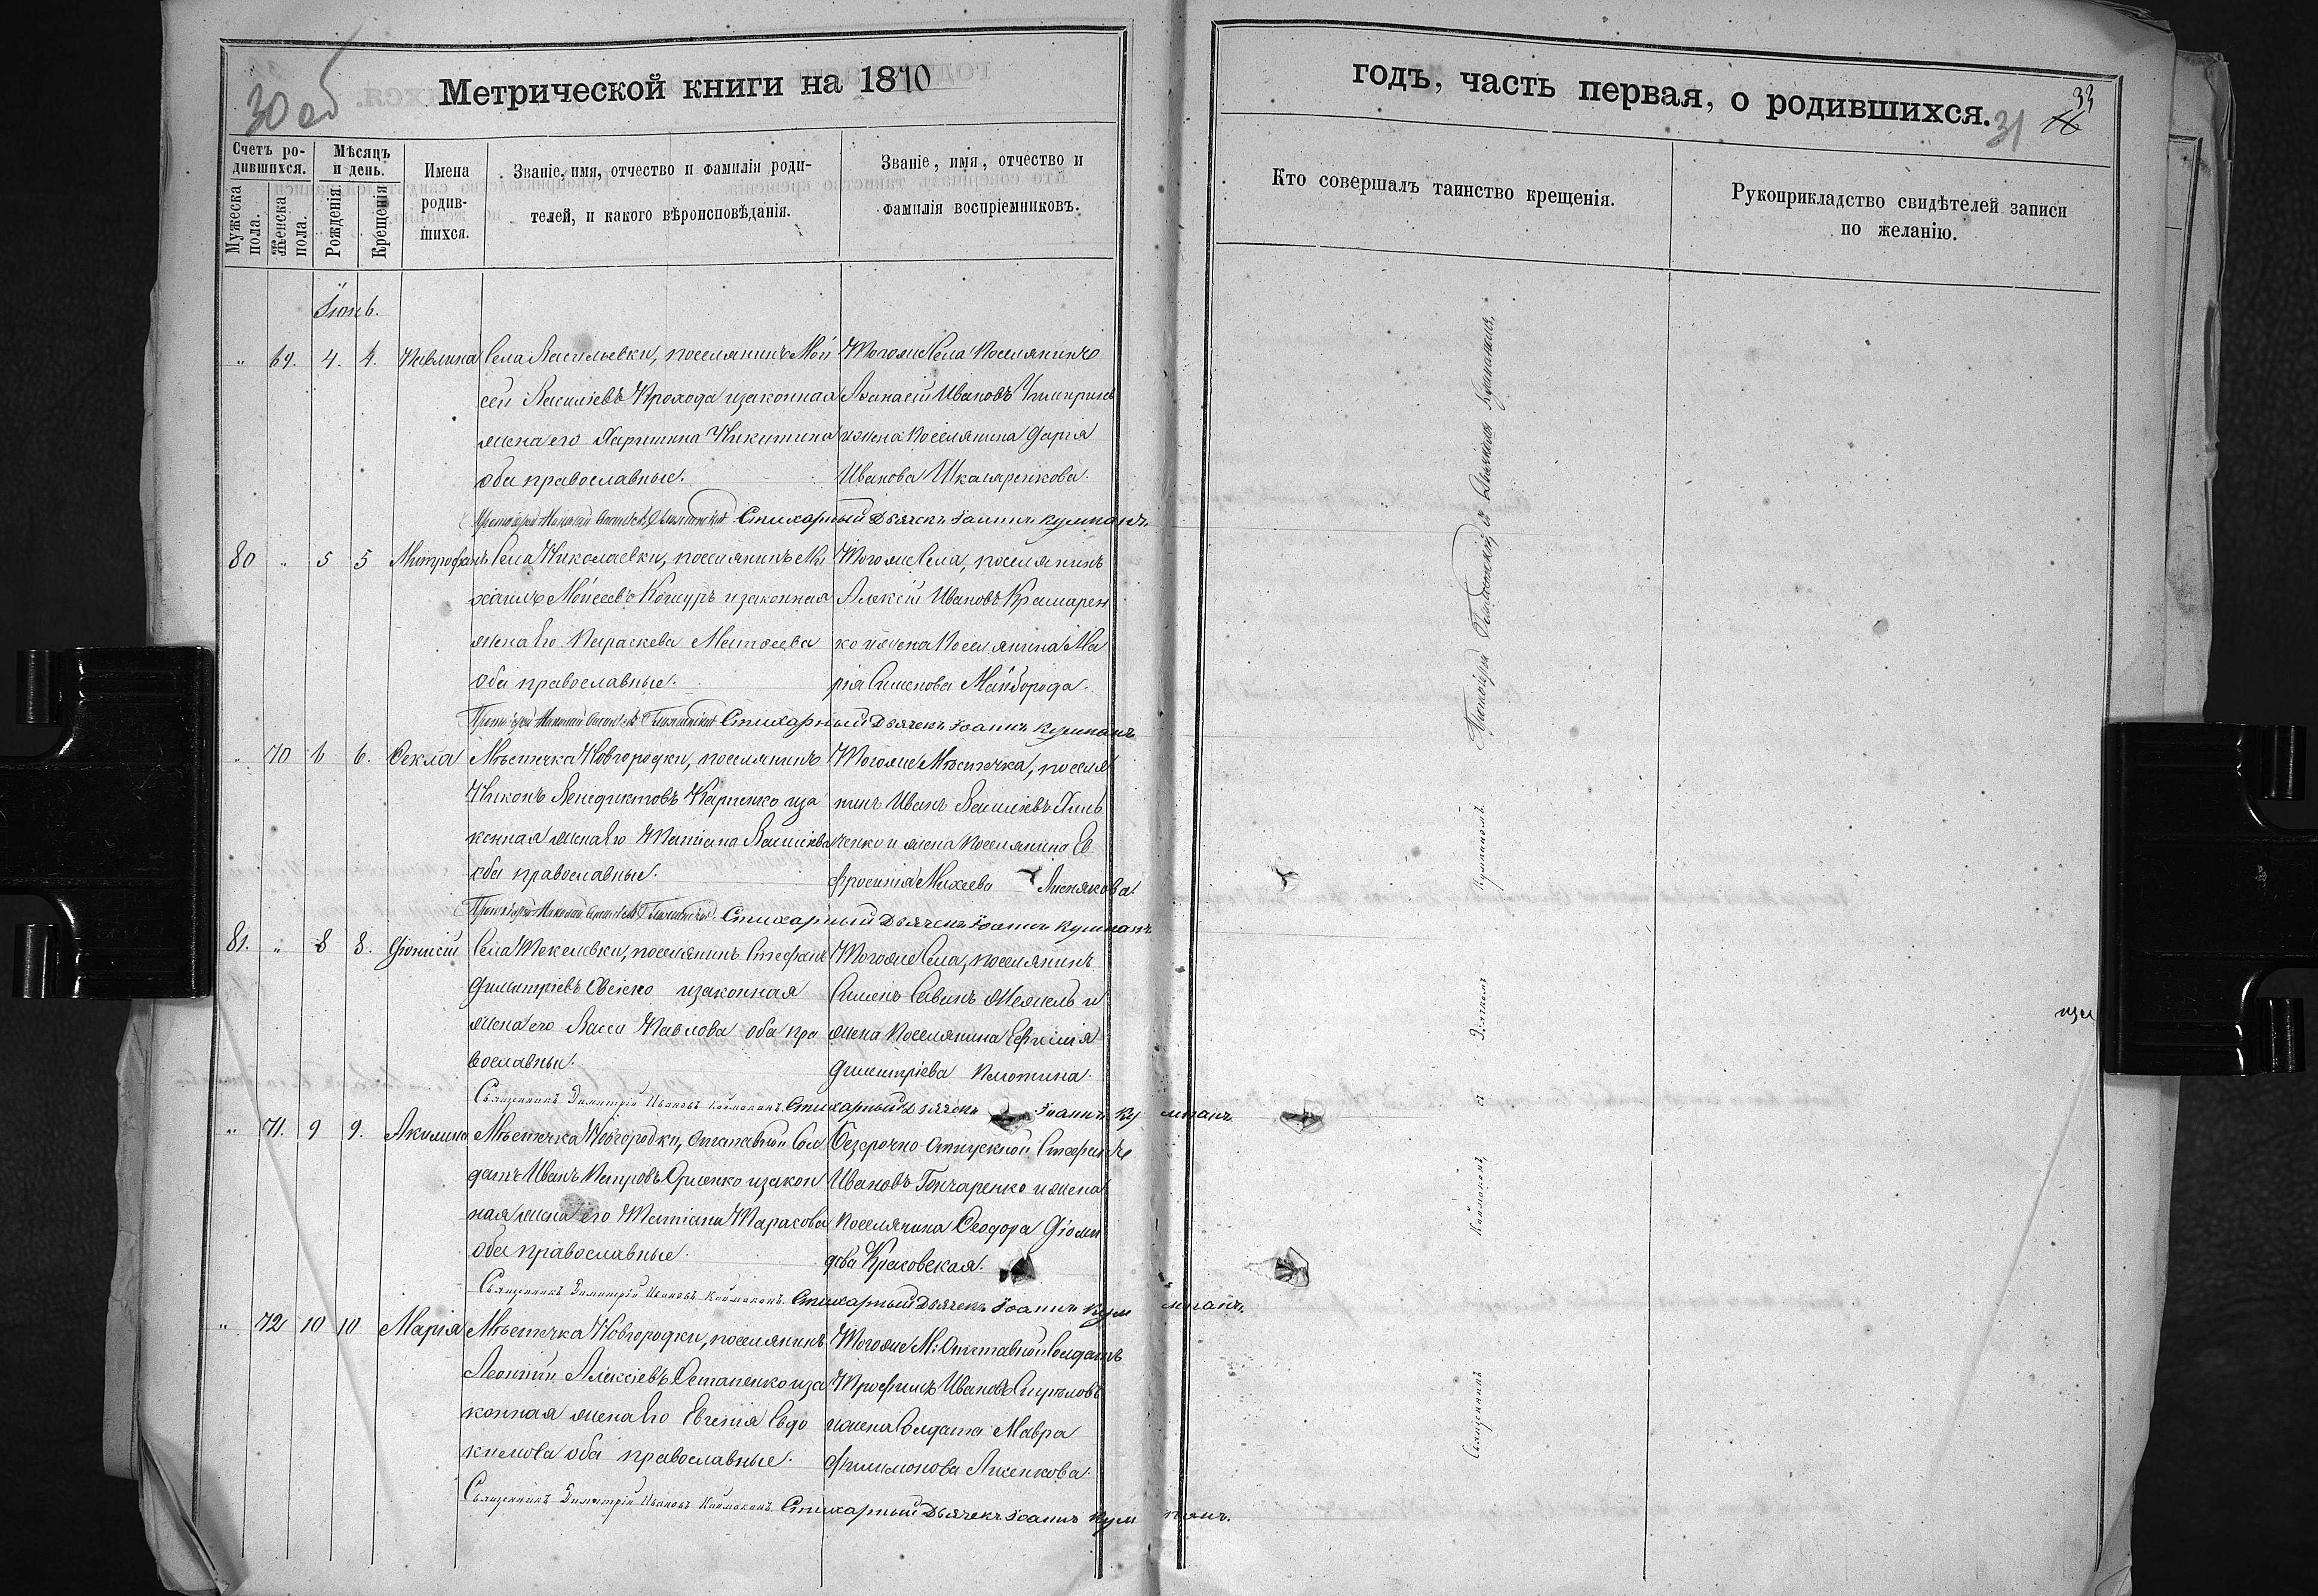 30 об
Метрической книги на 1870
годъ, часть первая, о родившихся.
31 33
Счетъ ро-
дившихся.
Мѣсяцъ
и день.
Мужеска
пола.
Женска
пола.
Рожденія.
Крещенія
Имена
родив-
шихся.
Званіе, имя, отчество и фамилія роди-
телей, и какого вѣроисповѣданія.
Званіе, имя, отчество и
фамилія воспріемниковъ.
Кто совершалъ таинство крещенія.
Рукоприкладство свидѣтелей записи
по желанію.
Іюнь.
" 69. 4. 4. Павлина
Села Васильевки, поселянинъ Мой
сей Василіевъ Прохода и законная
жена его Харитина Никитина
оба православные.
Тогоже Села Поселянинъ
Афанасій Ивановъ
и жена Поселянина Дарія
Иванова Шкляренкова.
Протоіерей Николай Стихарный Дьячекъ Іоаннъ Кулпанъ.
80 " 5 5 Митрофанъ
Села Николаевки, поселянинъ Ми
хаилъ Моисеевъ Кошуръ и законная
жена Его Параскева Матөеева
оба православные.
Тогоже Села, поселянинъ
Алексій Ивановъ Крамарен
ко и жена Поселянина Ма
рія Сименова Майборода.
Протоіерей Николай Стихарный Дьячекъ Іоаннъ Кулпанъ
" 70 6 6. Өекла
Мѣстечка Новгородки, поселянинъ
Никонъ Венедиктовъ Карпенко и за
конная жена Его Татіана Василіева
оба православные.
Тогоже Мѣстечка, поселя
нинъ Иванъ Василіевъ Хиль
ченко и жена Поселянина Ев
фросинія Михеева Лиснякова.
Протоіерей Николай Стихарный Дьячекъ Іоаннъ Кулпанъ
81. " 8 8. Діонисій
Села Текелевки, поселянинъ Стефанъ
Димитріевъ и законная
жена его Васса Павлова оба пра
вославные.
Тогоже Села, поселянинъ
Сименъ Савинъ и
жена Поселянина Евфимія
Димитріева Плотина.
Священникъ Димитрій Ивановъ Каймаканъ. Стихарный Дьячекъ Іоаннъ Кулпанъ
" 71. 9 9. Акилина
Мѣстечка Новгородки, Отставной Сол
датъ Иванъ Петровъ и закон
ная жена его Татіана Тарасова
оба православные.
Безсрочно-Отпускной Стефанъ
Ивановъ Гончаренко и жена
Поселянина Өеодора Діоми
дова Краковская.
Священникъ Димитрій Ивановъ Каймаканъ. Стихарный Дьячекъ Іоаннъ Кулпанъ.
" 72 10 10 Марія
Мѣстечка Новгородки, поселянинъ
Леонтій Алексіевъ Остапенко и за
конная жена Его Евгенія Евдо
кимова оба православные.
Тогоже М: Отставной Солдатъ
Трофимъ Ивановъ
и жена Солдата Мавра
Филимонова Лисенкова.
Священникъ Димитрій Ивановъ Каймаканъ. Стихарный Дьячекъ Іоаннъ Кулпанъ.
Священникъ Каймаканъ, съ Дьячкомъ Кулпаномъ.